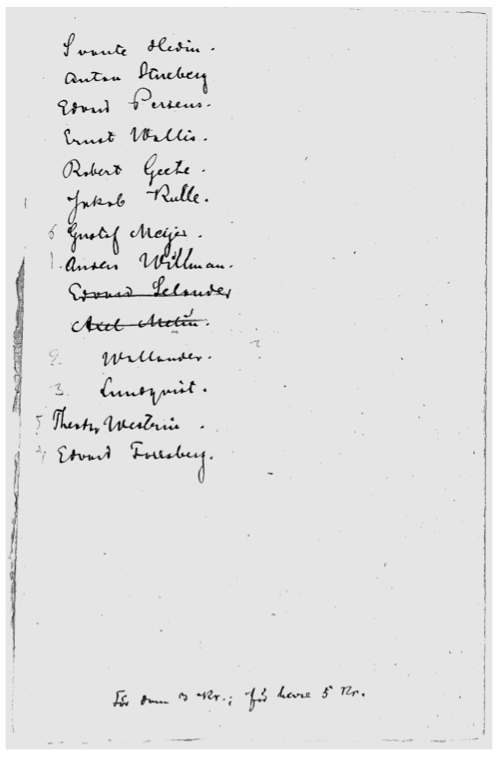 Svante Hedin.
Anton Stuxberg
Edvard Perseus.
Ernst Wallis.
Robert Geete.
Jakob Kulle.
6 Gustaf Meijer.
1. Anders Willman.
Edvard Selander
Axel Melin.
2. Wallander.
3. Lundqvist.
5 Westrin.
4 Edvard Forssberg.
För dam 3 Kr.; för herre 5 Kr.